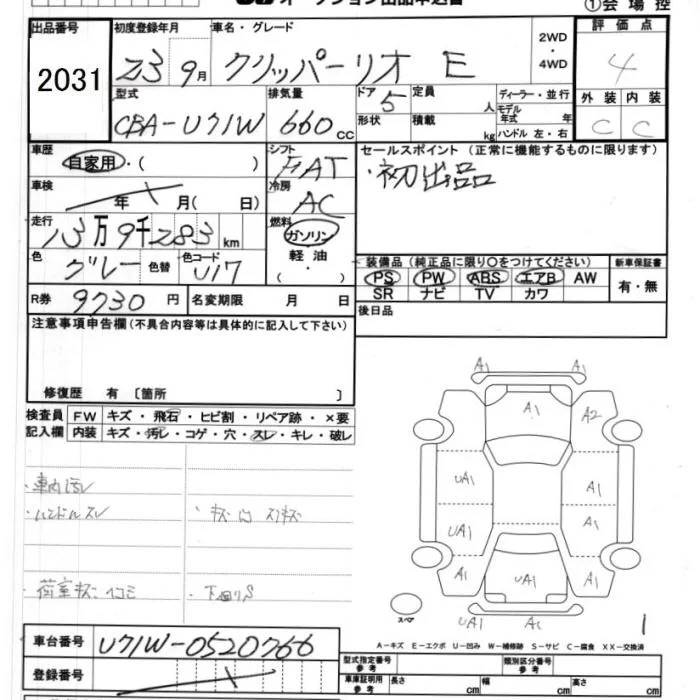 オークション出品申込書 ①会場控
出品番号 初度登録年月 車名・グレード 2WD・4WD 評価点
2031 23 9月 クリッパーリオ E 4
型式 排気量 ドア 定員 ディーラー・並行 外装 内装
CBA-U71W 660cc 5 人 モデル年式 年 C C
形状 積載 kg ハンドル 左・右
車歴 シフト セールスポイント (正常に機能するものに限ります)
自家用・( ) FAT ・初出品
車検 冷房
年 月( 日) AC
走行 燃料
13万9千283km ガソリン
色 色替 色コード 軽油 装備品(純正品に限り○をつけてください) 新車保証書
グレー U17 ・( ) PS PW ABS エアB AW 有・無
R券 9730円 名変期限 月 日 SR ナビ TV カワ
注意事項申告欄(不具合内容等は具体的に記入して下さい) 後日品
修復歴 有 〔箇所 〕
検査員 FW キズ・飛石・ヒビ割・リペア跡・×要
記入欄 内装 キズ・汚レ・コゲ・穴・スレ・キレ・破レ
A1 A1
A1 A2
・車内汚レ UA1 A1
・ハンドルスレ ・キズ
UA1 A1
A1 UA1 A1
・荷室キズ ヘコミ ・下回りS
スペア UA1 A1 1
車台番号 U71W-0520766 A-キズ E-エクボ U-凹み W-補修跡 S-サビ C-腐食 XX-交換済
登録番号 型式指定番号 参考 類別区分番号 参考
車庫証明用 参考 長さ cm 幅 cm 高さ cm